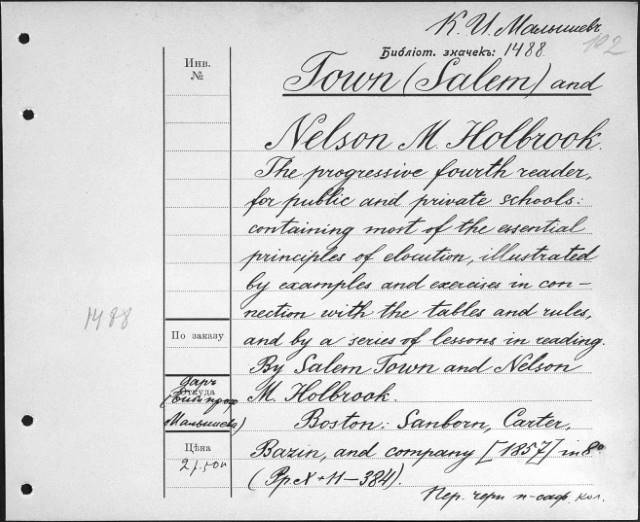 К. И. Малышевъ
102
Библіот. значекъ: 1488
Инв.
№
Town (Salem) and
Nelson M. Holbrook.
The progressive fourth reader,
for public and private schools:
containing most of the essential
principles of elocution, illustrated
by examples and exercises in con-
nection with the tables and rules,
and by a series of lessons in reading.
By Salem Town and Nelson
M. Holbrook.
Boston: Sanborn, Carter,
Bazin, and company [1857] in 8°
(Pp X+11—384).
1488
По заказу
даръ
Откуда
Малышева)
Цѣна
2 р. 50 к
Пер. черн кол.